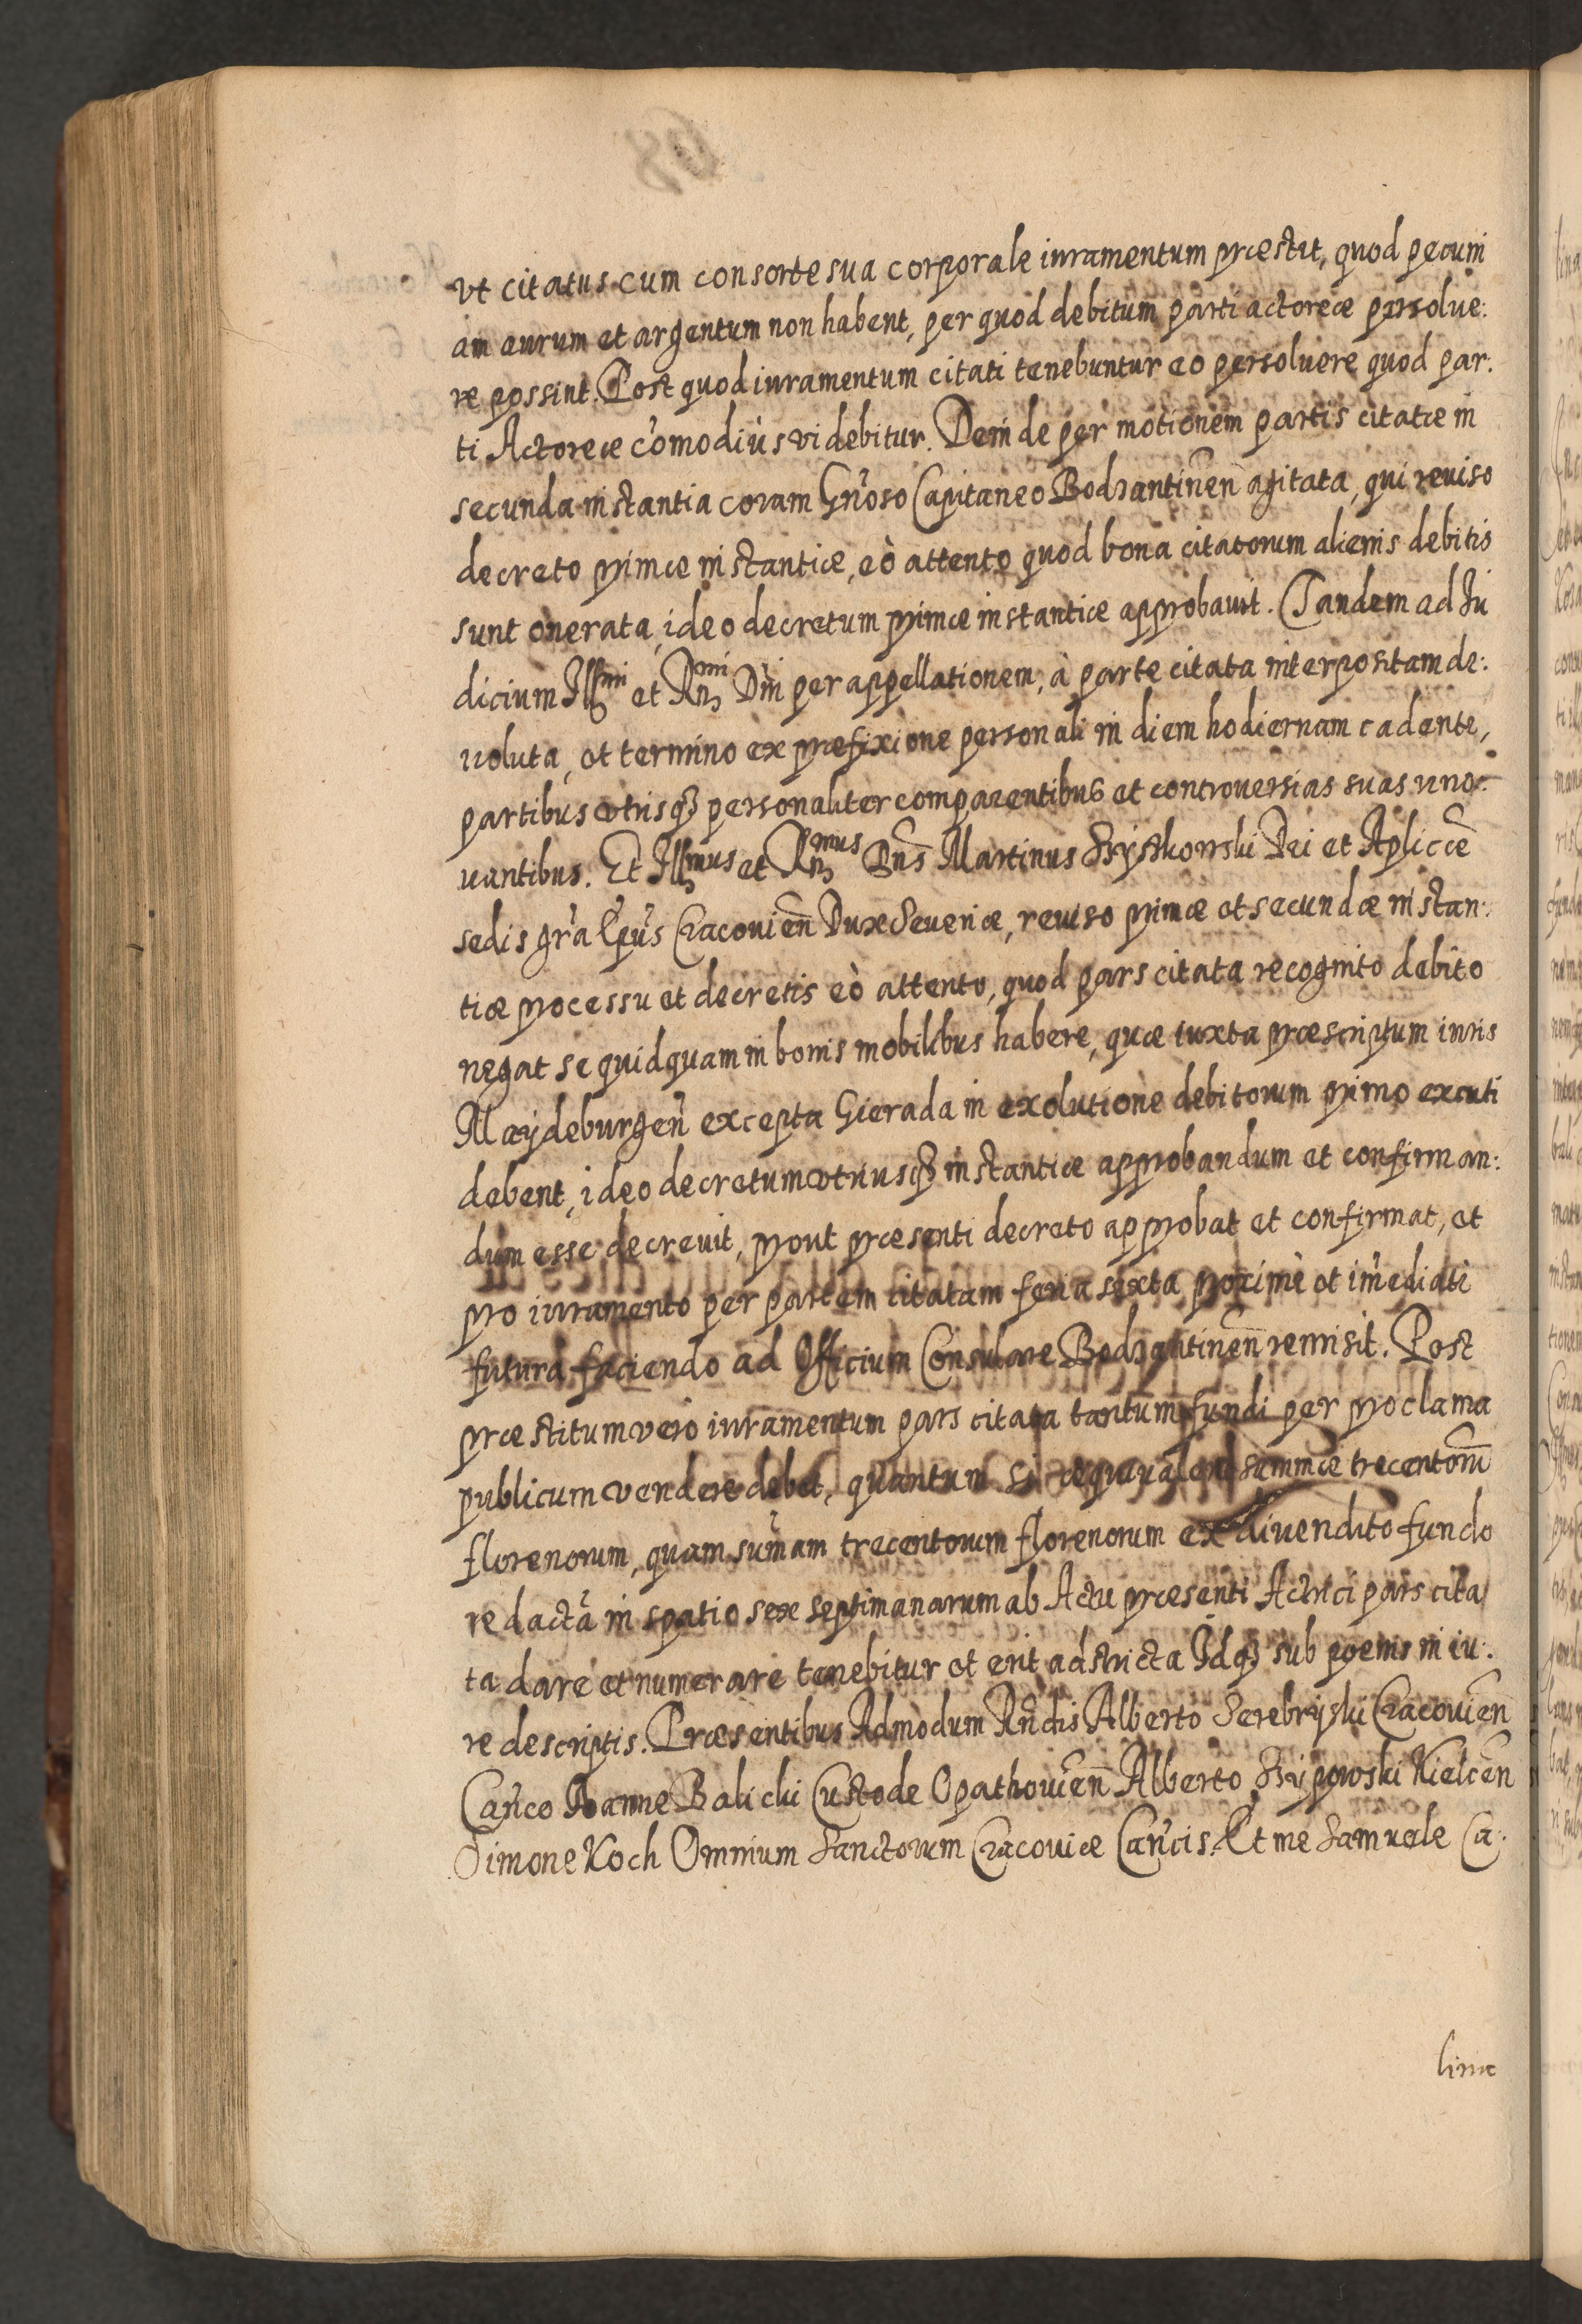 vt citatus cum consorte sua corporale iuramentum præstit, quod pecuni
am aurum et argentum non habent, per quod debitum parti actoreæ persolue:
re possint. Post quod iuramentum citati tenebuntur eo persoluere quod par:
ti Actoreæ com̃odiùs videbitur. Deinde per motionem partis citatæ in
secunda instantia coram Gnõso Capitaneo Bodzantineñ agitata, qui reuiso
decreto primæ instantiæ, eò attento quod bona citatorum alienis debitis
sunt onerata, ideo decretum primæ instantiæ approbauit. Tandem ad Iu
dicium Illmi et Rndmi Dñi per appellationem, à parte citata interpositam de:
uoluta, et termino ex præfixione personali in diem hodiernam cadente,
partibus vtrisqꝫ personaliter comparentibus et controuersias suas inno:
uantibus. Et Illmus et Rndmus Dñs Martinus Szyszkowski Dei et Aplicæ
sedis grã Epũs Cracouieñ Dux Seueriæ, reuiso primæ et secundæ instan:
tiæ processu et decretis eò attento, quod pars citata recognito debito
negat se quidquam in bonis mobilibus habere, quæ iuxta præscriptum iuris
Maydeburgeñ excepta Gierada in exolutione debitorum primo excuti
debent, ideo decretum vtriusqꝫ instantiæ approbandum et confirman:
dum esse decreuit, prout præsenti decreto approbat et confirmat, et
pro iuramento per partem citatam feria sexta proximè et im̃ediatè
futura faciendo ad Officium Consulare Bodzantineñ remisit. Post
præstitum verò iuramentum pars citata tantum fundi per proclama
publicum vendere debet, quantum æquiualens summæ trecentorũ
florenorum, quam sum̃am trecentorum florenorum ex diuendito fundo
redactã in spatio sex septimanarum ab Actu præsenti Actrici pars cita
ta dare et numerare tenebitur et erit adstricta Idqꝫ sub poenis in iu:
re descriptis. Præsentibus Admodum Rñdis Alberto Serebryski Cracouieñ
Cañco Ioanne Balicki Custode Opathouieñ Alberto Lipowski Kielceñ
Simone Koch Omnium Sanctorum Cracouiæ Cañcis. Et me Samuele Ca:
linc